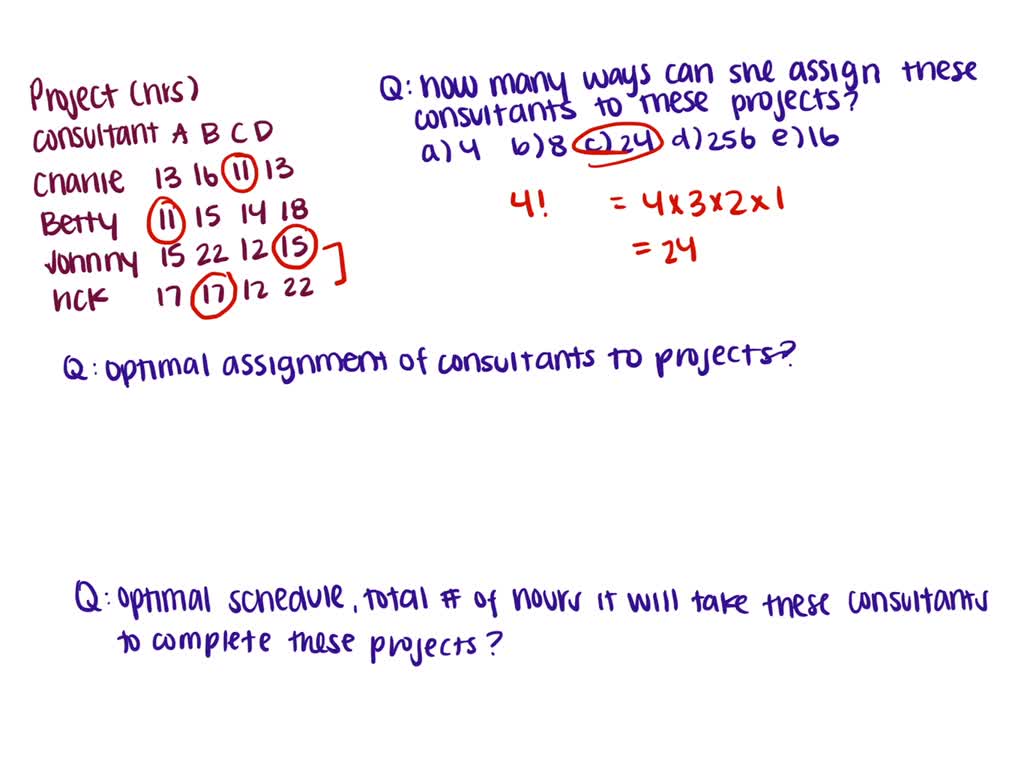 Project (hrs)
consultant A B C D
Charlie 13 16 11 13
Betty 11 15 14 18
Johnny 15 22 12 15
nck 17 17 12 22
Q: how many ways can she assign these
consultants to these projects?
a) 4 b) 8 c) 24 d) 256 e) 16
4! = 4 x 3 x 2 x 1
= 24
Q: optimal assignment of consultants to projects?
Q: optimal schedule, total # of hours it will take these consultants
to complete these projects?